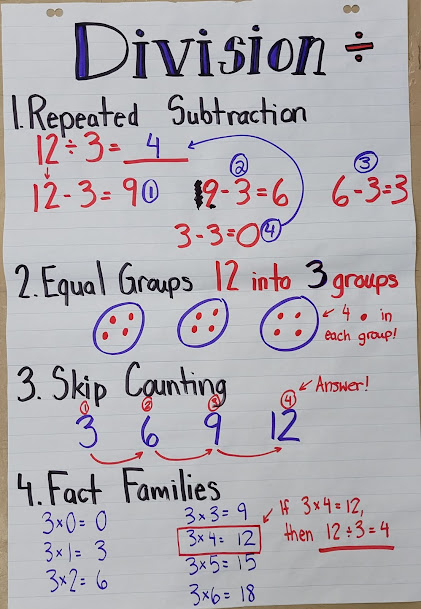 Division ÷
1. Repeated Subtraction
12 ÷ 3 = 4
12 - 3 = 9 ① 9 - 3 = 6 ② 6 - 3 = 3 ③
3 - 3 = 0 ④
2. Equal Groups 12 into 3 groups
← 4 • in
each group!
3. Skip Counting ← Answer!
① ② ③ ④
3 6 9 12
4. Fact Families
3 × 0 = 0
3 × 1 = 3
3 × 2 = 6
3 × 3 = 9
3 × 4 = 12
3 × 5 = 15
3 × 6 = 18
If 3 × 4 = 12,
then 12 ÷ 3 = 4